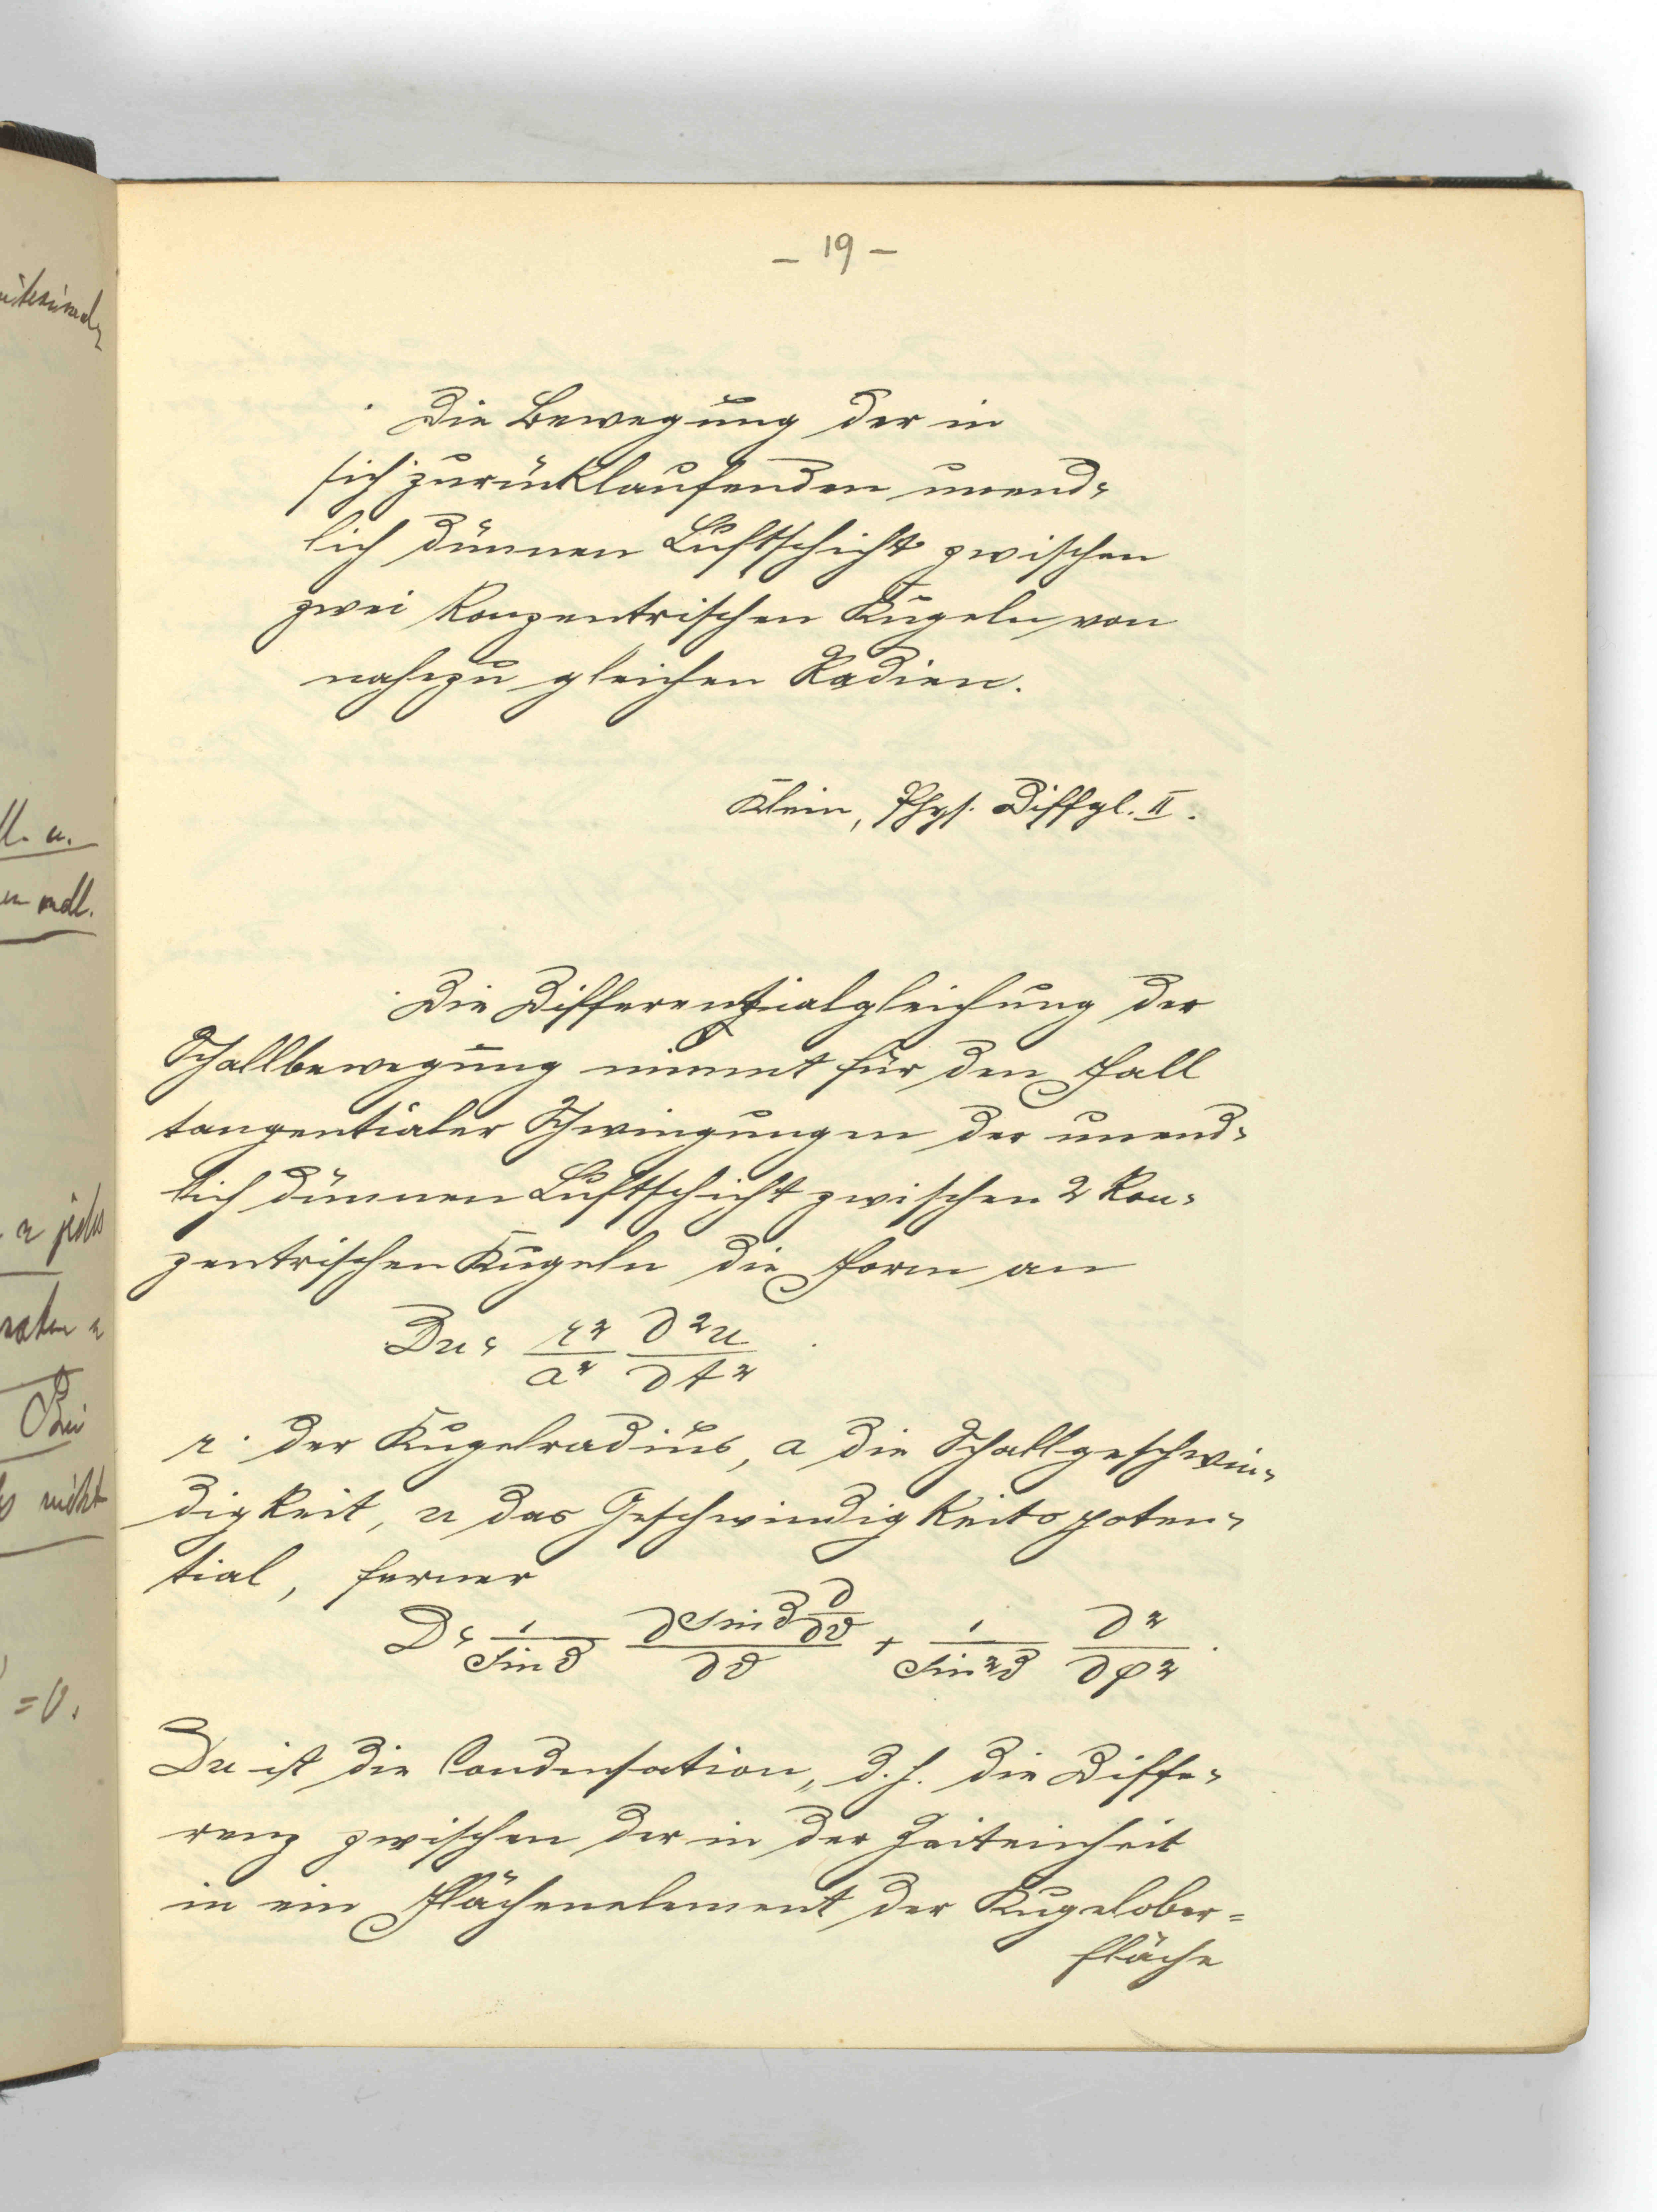 – 19 –
Die Bewegung der in
sich zurücklaufenden unend-
lich dünnen Luftschicht zwischen
zwei konzentrischen Kugeln von
nahezu gleichen Radien.
Klein, Phys. Diffgl. II.
Die Differentialgleichung der
Schallbewegung nimmt für den Fall
tangentialer Schwingungen der unend-
lich dünnen Luftschicht zwischen 2 kon-
zentrischen Kugeln die Form an
Du = r²/a² ∂²u/∂t²
r der Kugelradius, a die Schallgeschwin-
digkeit, u das Geschwindigkeitspoten-
tial, ferner
D = 1/sin ϑ ∂ sin ϑ ∂/∂ϑ / ∂ϑ + 1/sin²ϑ ∂²/∂φ².
Du ist die Condensation, d. h. die Diffe-
renz zwischen der in der Zeiteinheit
in ein Flächenelement der Kugelober-
fläche
ll. u.
n jedes
Bei
nicht
= 0.